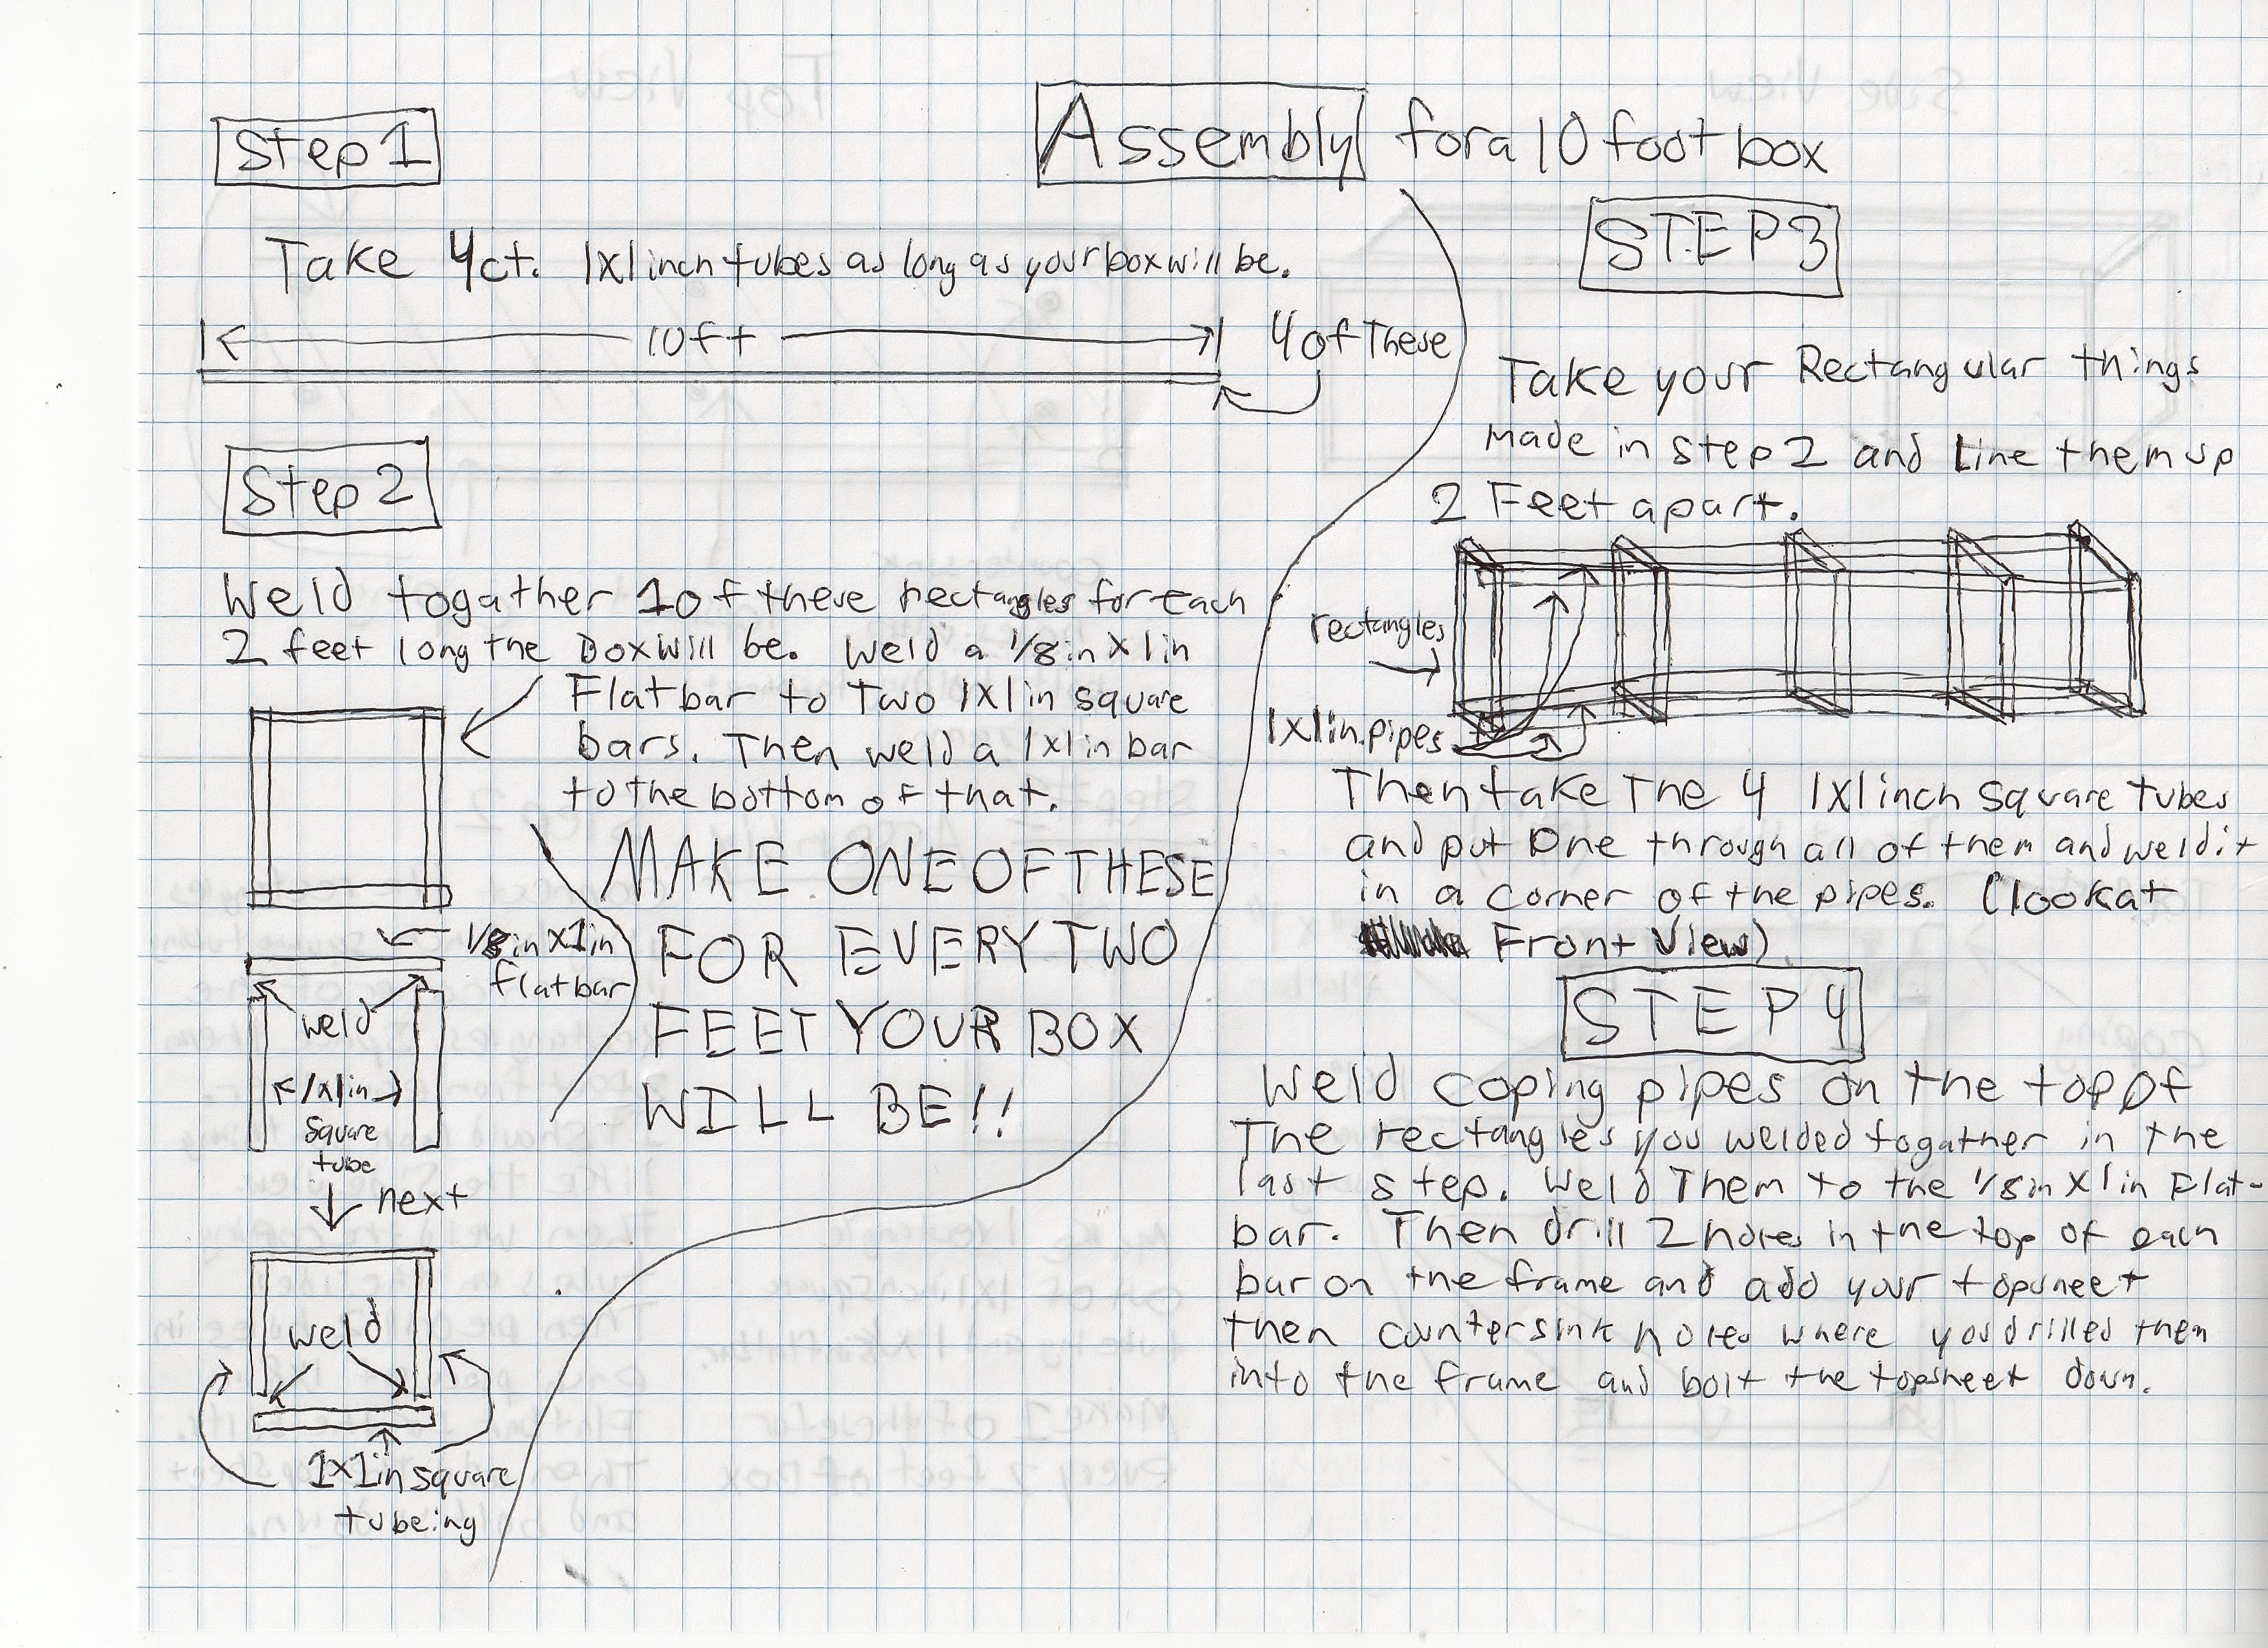 Assembly for a 10 foot box
Step 1
Take 4ct. 1x1 inch tubes as long as your box will be.
10ft
4 of These
Step 2
Weld togather 1 of these rectangles for each
2 feet long the Box will be. Weld a 1/8in x 1in
Flatbar to Two 1x1in square
bars. Then weld a 1x1in bar
to the bottom of that.
MAKE ONE OF THESE
FOR EVERY TWO
FEET YOUR BOX
WILL BE!!
1/8in x 1in
flatbar
weld
1x1in
Square
tube
next
weld
1x1in square
tubeing
STEP 3
Take your Rectangular things
made in step 2 and Line them up
2 Feet apart.
rectangles
1x1in.pipes
Then take The 4 1x1 inch square tubes
and put One through all of them and weld it
in a corner of the pipes. (look at
Front View)
STEP 4
Weld coping pipes on the top of
The rectangles you welded togather in the
last step. Weld Them to the 1/8in x 1in Flat-
bar. Then drill 2 holes in the top of each
bar on the frame and add your topsheet
then countersink holes where you drilled them
into the frame and bolt the topsheet down.